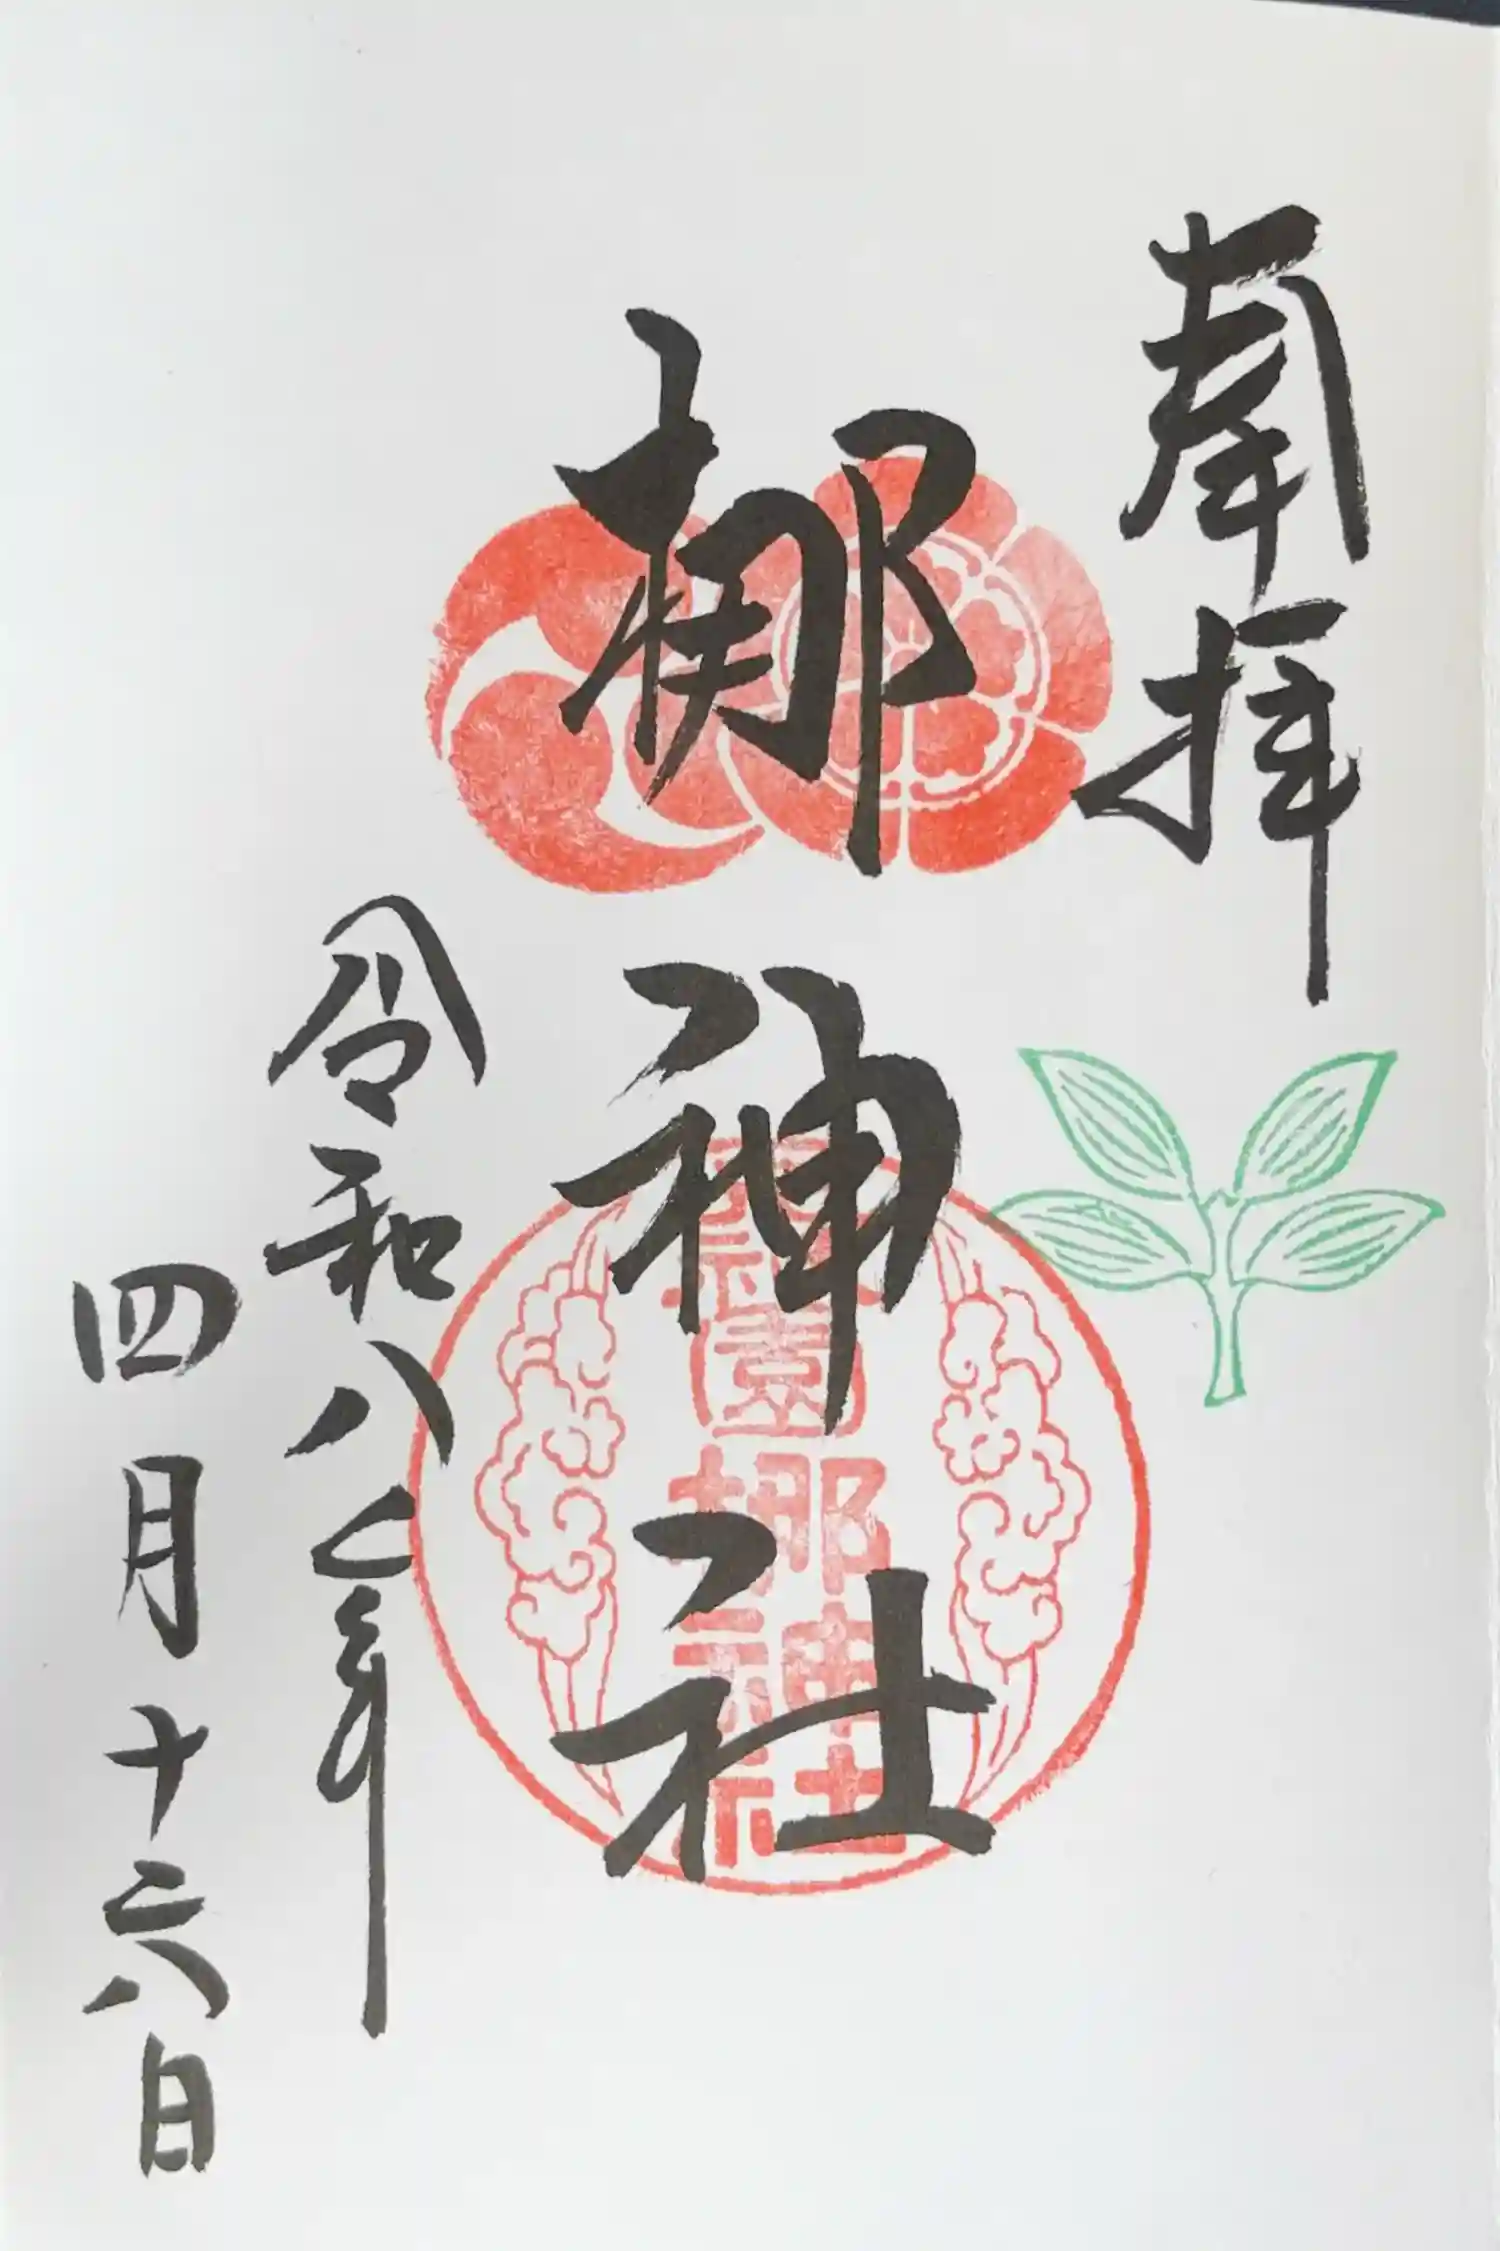 奉拝
梛神社
元祇園梛神社
令和八年
四月十六日